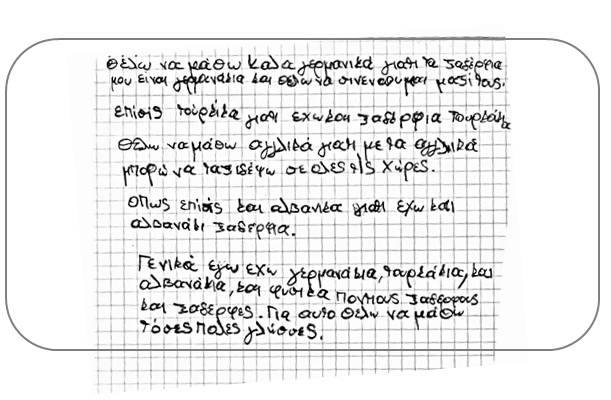 Θέλω να μάθω καλα γερμανικά γιατι τα ξαδέρφια
μου είναι γερμανάκια και θέλω να σινενοουμαι μαζί τους.
επίσις τούρκικα γιατι εχω και ξαδέρφια Τουρκάκια
Θέλω να μάθω αγγλικά γιατι με τα αγγλικά
μπορώ να ταξιδέψω σε ολες τις χώρες.
οπως επίσις και αλβανικα γιατι έχω και
αλβανάκι ξαδερφια.
Γενικά εγω εχω γερμανάκια, τουρκάκια, και
αλβανάκια, και φυσικα Ποντιους ξαδερφους
και ξαδερφες. Για αυτο Θέλω να μάθω
τόσες πολες γλώσσες.